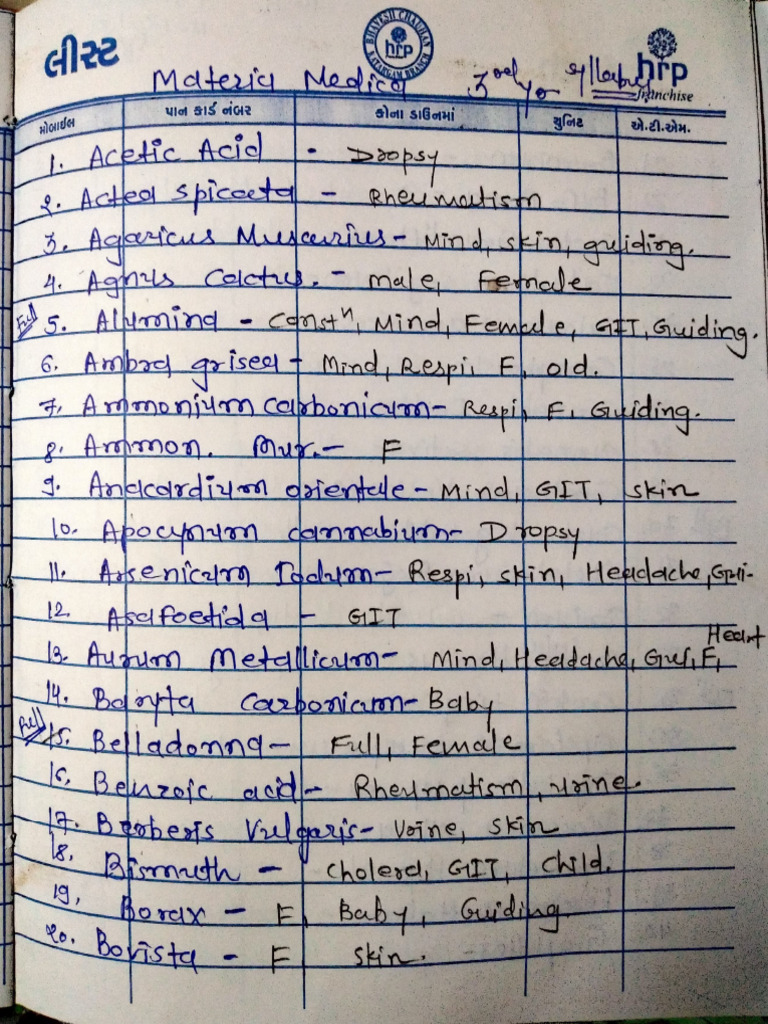 લીસ્ટ
BHAVESH CHAUHAN
hrp
KATARGAM BRANCH
hrp
franchise
Materia Medica 3rd yr syllabus
મોબાઈલ પાન કાર્ડ નંબર કોના ડાઉનમાં યુનિટ એ.ટી.એમ.
1. Acetic Acid - Dropsy
2. Actea spicaeta - Rheumatism
3. Agaricus Muscurius - Mind, skin, guiding.
4. Agnus Cactus. - male, Female
Full 5. Alumina - Constⁿ, Mind, Female, GIT, Guiding.
6. Ambra grisea - Mind, Respi, F, old.
7. Ammonium carbonicum - Respi, F, Guiding.
8. Ammon. Mur. - F
9. Anacardium orientale - Mind, GIT, skin
10. Apocynum cannabium - Dropsy
11. Arsenicum Iodum - Respi, skin, Headache, Gui-
12. Asafoetida - GIT
13. Aurum Metallicum - Mind, Headache, Gui, F, Heart
14. Baryta carbonicum - Baby
Full 15. Belladonna - Full, Female
16. Benzoic acid - Rheumatism, urine.
17. Berberis Vulgaris - Urine, skin
18. Bismuth - Cholera, GIT, Child.
19. Borax - F, Baby, Guiding.
20. Bovista - F skin.